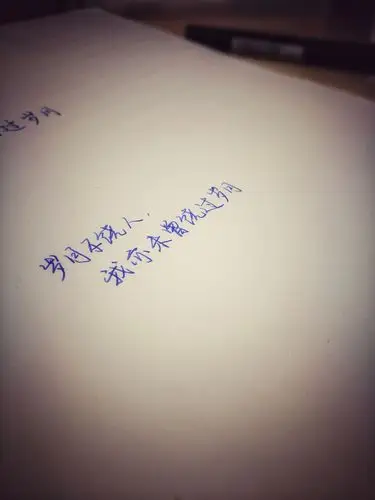 过岁月
岁月不饶人,
我亦未曾饶过岁月